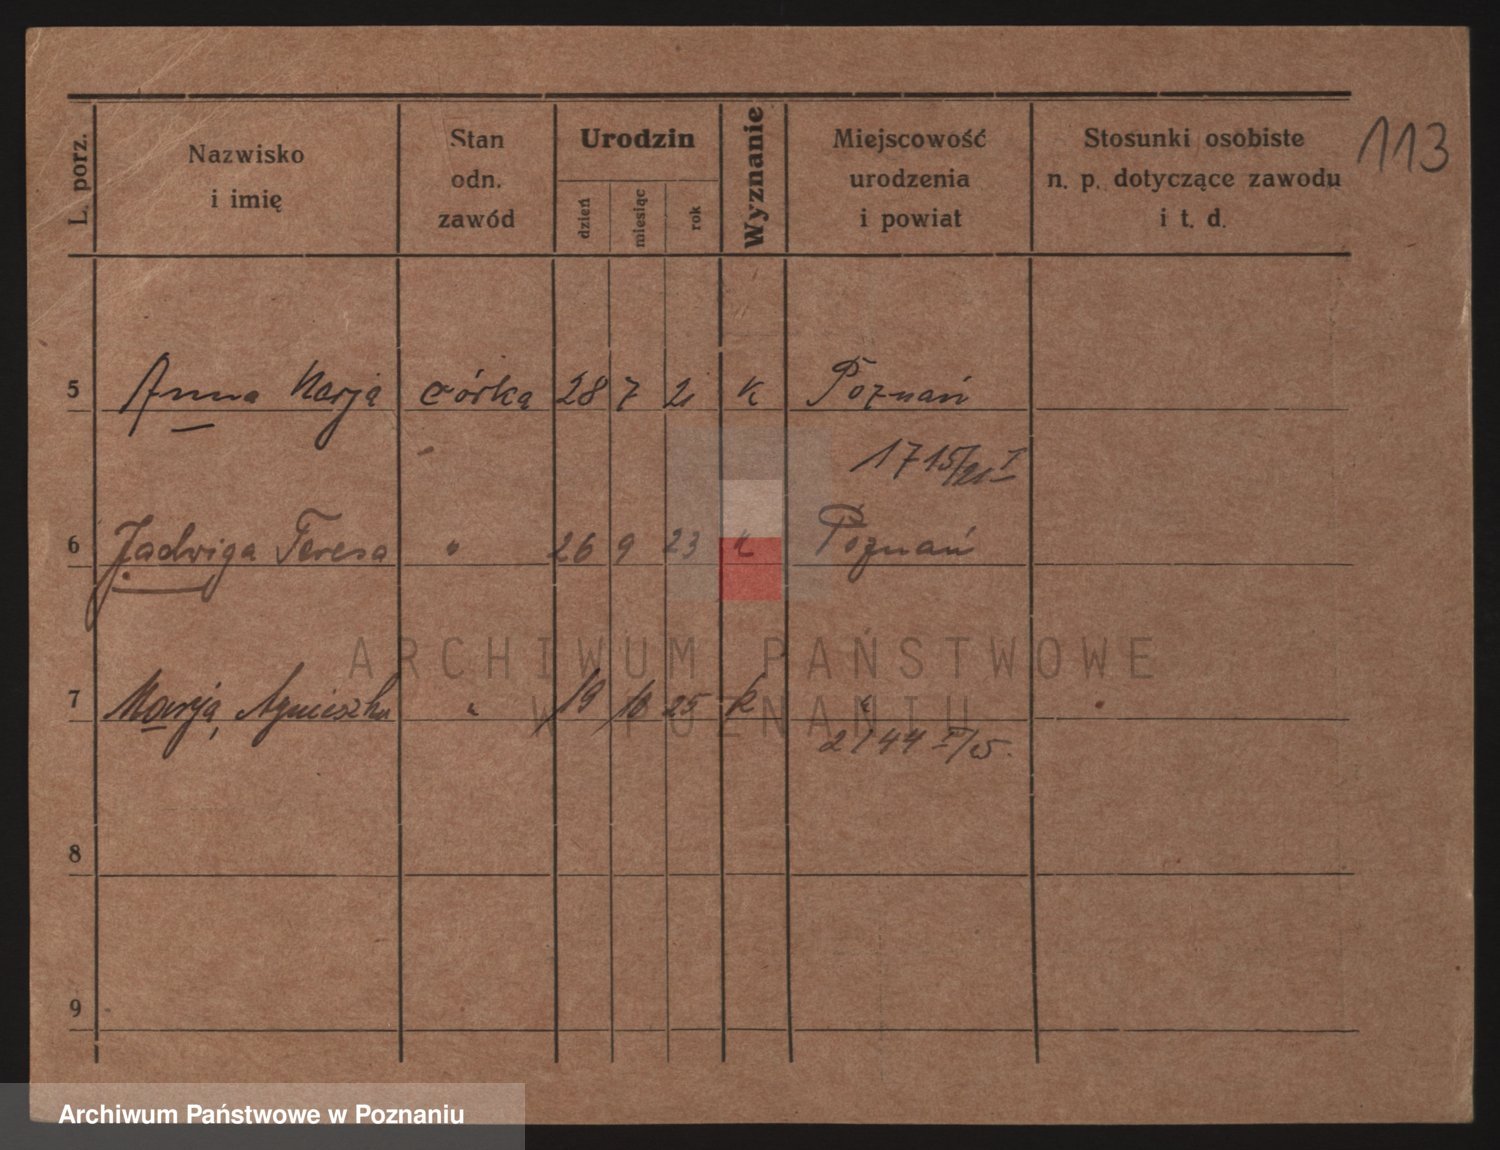 113
L. porz. Nazwisko i imię Stan odn. zawód Urodzin dzień miesiąc rok Wyznanie Miejscowość urodzenia i powiat Stosunki osobiste n. p. dotyczące zawodu i t. d.
5 Anna Marja córka 28 7 21 k Poznań
1715/21 I
6 Jadwiga Teresa " 26 9 23 k Poznań
7 Marja, Agnieszka " 19 10 25 k "
2144 II/25.
8
9
ARCHIWUM PAŃSTWOWE
W POZNANIU
Archiwum Państwowe w Poznaniu